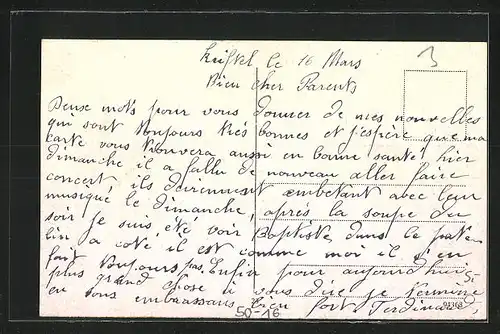 Kriftel le 16 Mars
3
Bien cher Parents
Deux mots pour vous donner de mes nouvelles
qui sont toujours très bonnes et j'espère que ma
carte vous trouvera aussi en bonne santé hier
dimanche il a fallu de nouveau aller faire
concert ils deviennent embetant avec leur
musique le dimanche après la soupe du
soir je suis été voir Baptiste dans le patelin
a coté il est comme moi il s'en
fait toujours pas. Enfin pour aujourd'hui
plus grand chose a vous dire je termine
en vous embrassans bien fort Ferdinand
91368
50-16